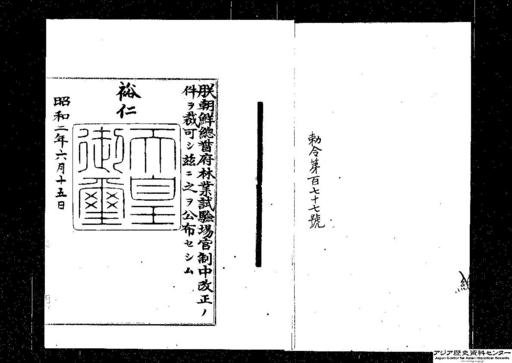 勅令第百七十七號
朕朝鮮總督府林業試驗場官制中改正ノ
件ヲ裁可シ茲ニ之ヲ公布セシム
裕仁
天皇
御璽
昭和二年六月十五日
アジア歴史資料センター
Japan Center for Asian Historical Records